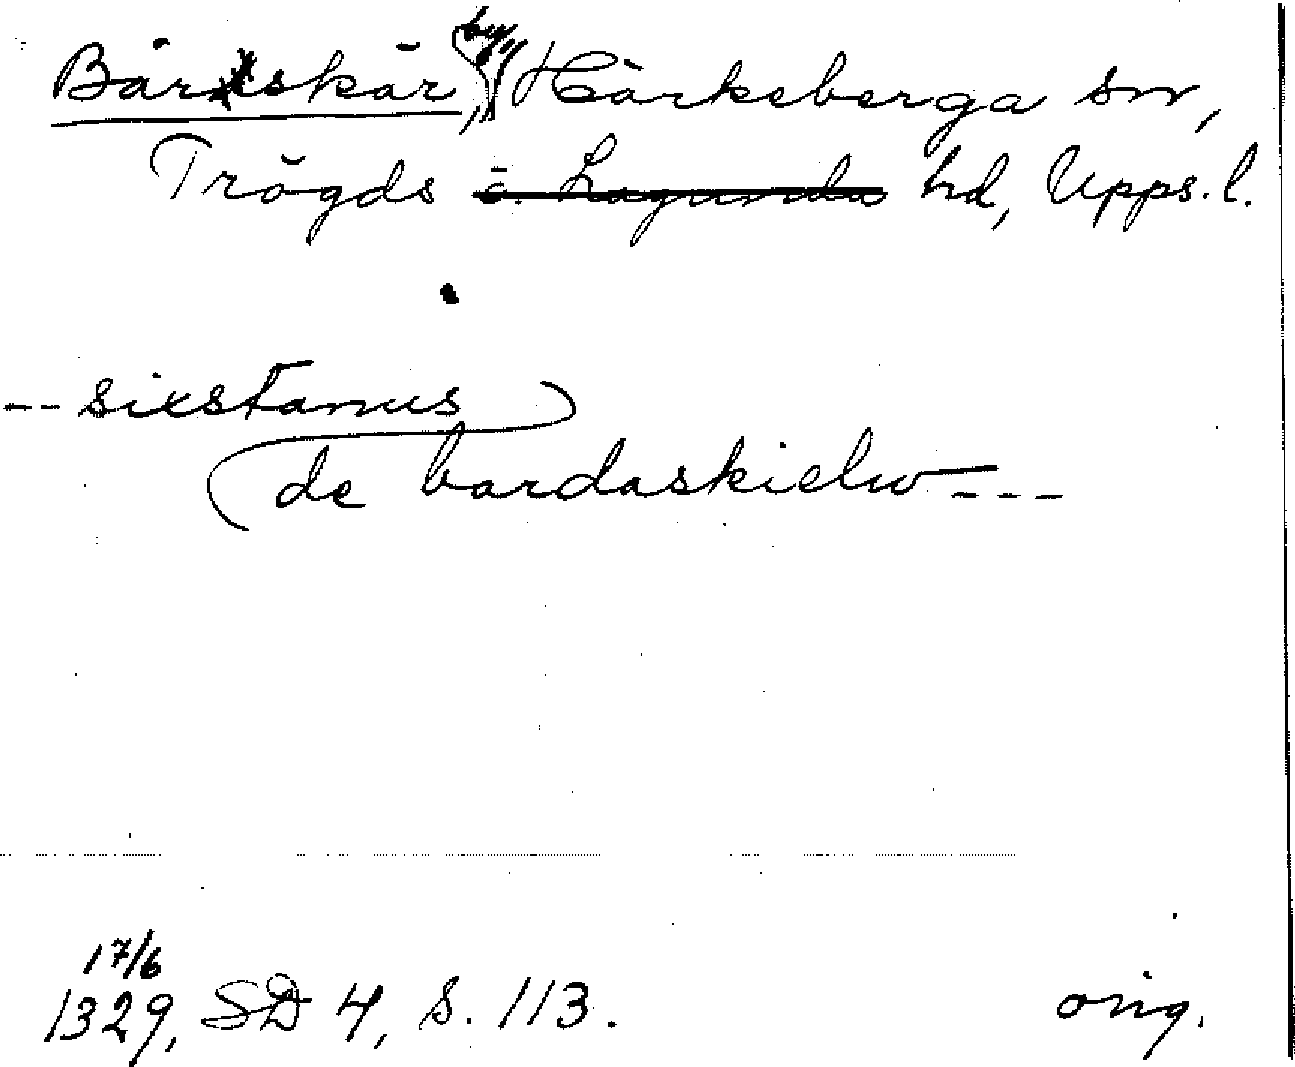 Bärskär, (by), Härkeberga sn,
Trögds o. Lagunda hd, Upps. l.
-- sixstanus
de bardaskielw ---
17/6
1329, SD 4, s. 113. orig.